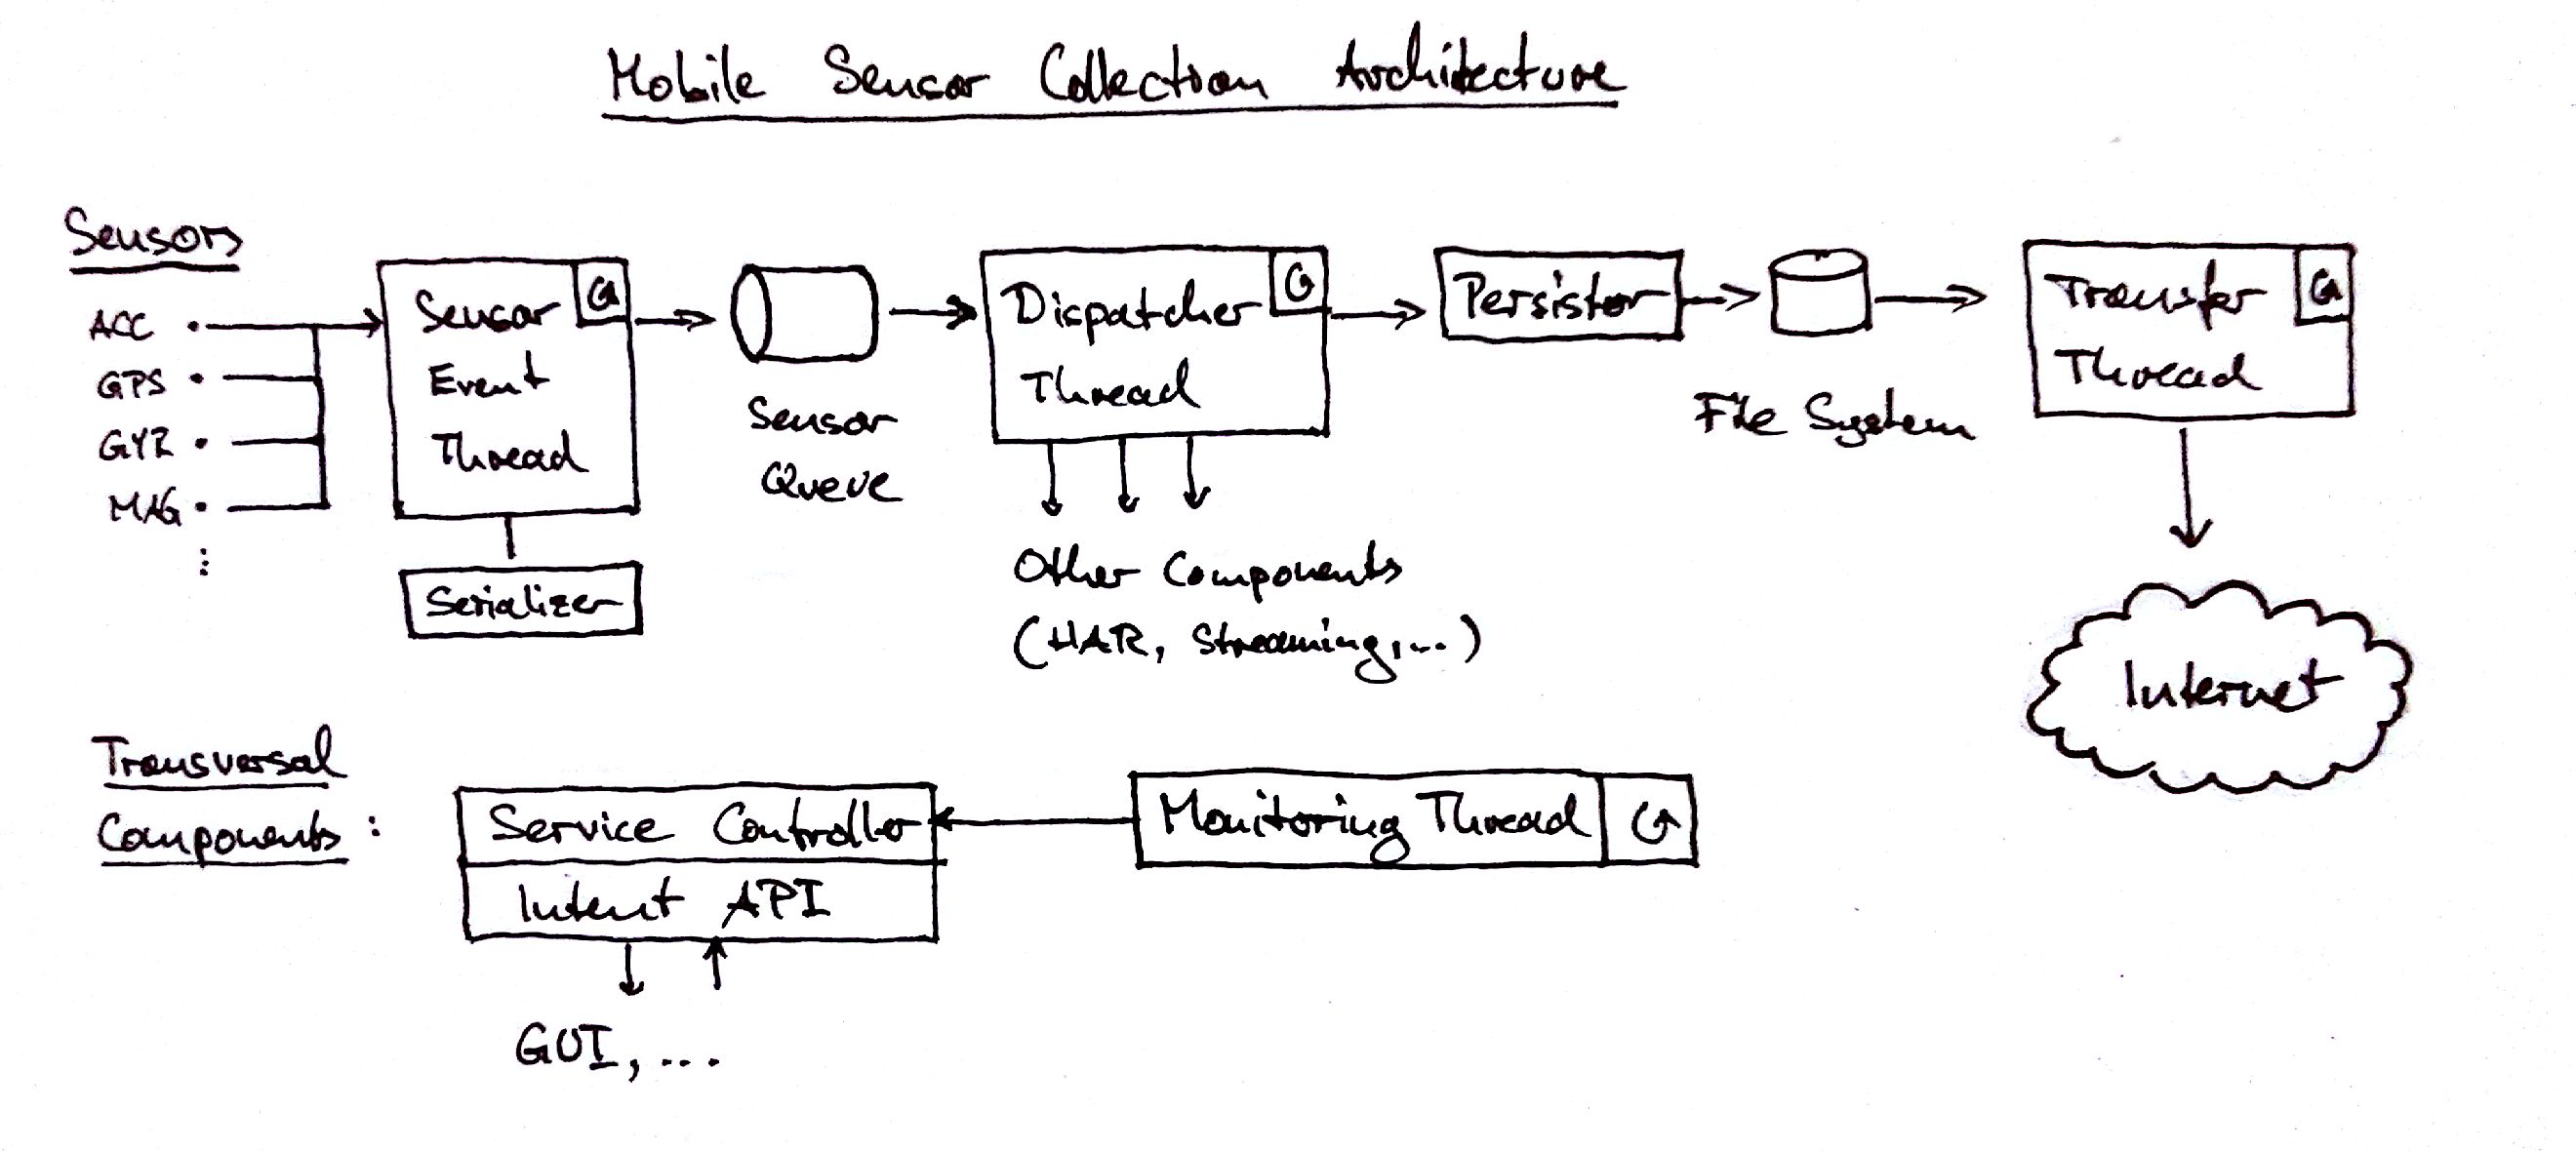 Mobile Sensor Collection Architecture
Sensors
ACC
GPS
GYR
MAG
⋮
Sensor
Event
Thread
Serializer
Sensor
Queue
Dispatcher
Thread
Other Components
(HAR, Streaming,...)
Persistor
File System
Transfer
Thread
Internet
Transversal
Components:
Service Controller
Intent API
GUI, ...
Monitoring Thread